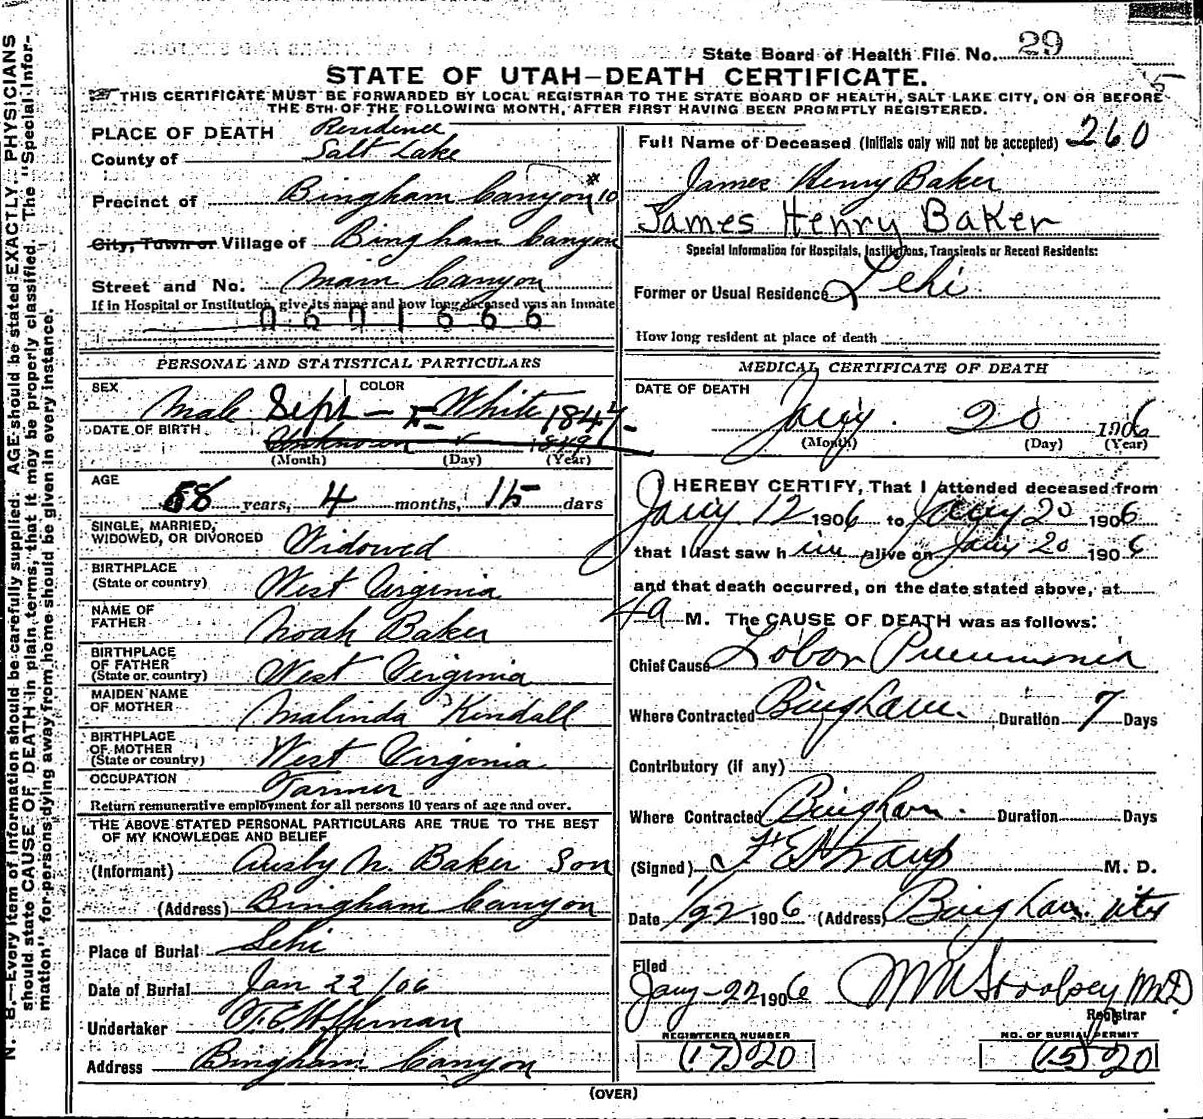 State Board of Health File No. 29
STATE OF UTAH–DEATH CERTIFICATE.
THIS CERTIFICATE MUST BE FORWARDED BY LOCAL REGISTRAR TO THE STATE BOARD OF HEALTH, SALT LAKE CITY, ON OR BEFORE
THE 5TH OF THE FOLLOWING MONTH, AFTER FIRST HAVING BEEN PROMPTLY REGISTERED.
PLACE OF DEATH Residence
County of Salt Lake
Precinct of Bingham Canyon #10
City, Town or Village of Bingham Canyon
Street and No. Main Canyon
If in Hospital or Institution, give its name and how long deceased was an inmate
0671666
PERSONAL AND STATISTICAL PARTICULARS
SEX Male COLOR White
Sept – 5 – 1847
DATE OF BIRTH Unknown 1849
(Month) (Day) (Year)
AGE 58 years, 4 months, 15 days
SINGLE, MARRIED,
WIDOWED, OR DIVORCED Widowed
BIRTHPLACE
(State or country) West Virginia
NAME OF
FATHER Noah Baker
BIRTHPLACE
OF FATHER
(State or country) West Virginia
MAIDEN NAME
OF MOTHER Malinda Kindall
BIRTHPLACE
OF MOTHER
(State or country) West Virginia
OCCUPATION Farmer
Return remunerative employment for all persons 10 years of age and over.
THE ABOVE STATED PERSONAL PARTICULARS ARE TRUE TO THE BEST
OF MY KNOWLEDGE AND BELIEF
(Informant) Ausby N. Baker Son
(Address) Bingham Canyon
Place of Burial Lehi
Date of Burial Jan 22/06
Undertaker
Address Bingham Canyon
Full Name of Deceased (Initials only will not be accepted) 260
James Henry Baker
James Henry Baker
Special Information for Hospitals, Institutions, Transients or Recent Residents:
Former or Usual Residence Lehi
How long resident at place of death
MEDICAL CERTIFICATE OF DEATH
DATE OF DEATH
Jany. 20 1906
(Month) (Day) (Year)
I HEREBY CERTIFY, That I attended deceased from
Jany 12 1906 to Jany 20 1906
that I last saw him alive on Jany 20 1906
and that death occurred, on the date stated above, at
4 a M. The CAUSE OF DEATH was as follows:
Chief Cause Lobar Pneumonia
Where Contracted Bingham. Duration 7 Days
Contributory (if any)
Where Contracted Bingham. Duration Days
(Signed) F E Straup M. D.
Date 1/22 1906 (Address) Bingham Utah
Filed
Jany-22 1906 M.D
Registrar
REGISTERED NUMBER
(17) 20
NO. OF BURIAL PERMIT
(15) 20
(OVER)
N. B.—Every item of information should be carefully supplied. AGE should be stated EXACTLY. PHYSICIANS
should state CAUSE OF DEATH in plain terms, that it may be properly classified. The "Special Infor-
mation" for persons dying away from home should be given in every instance.